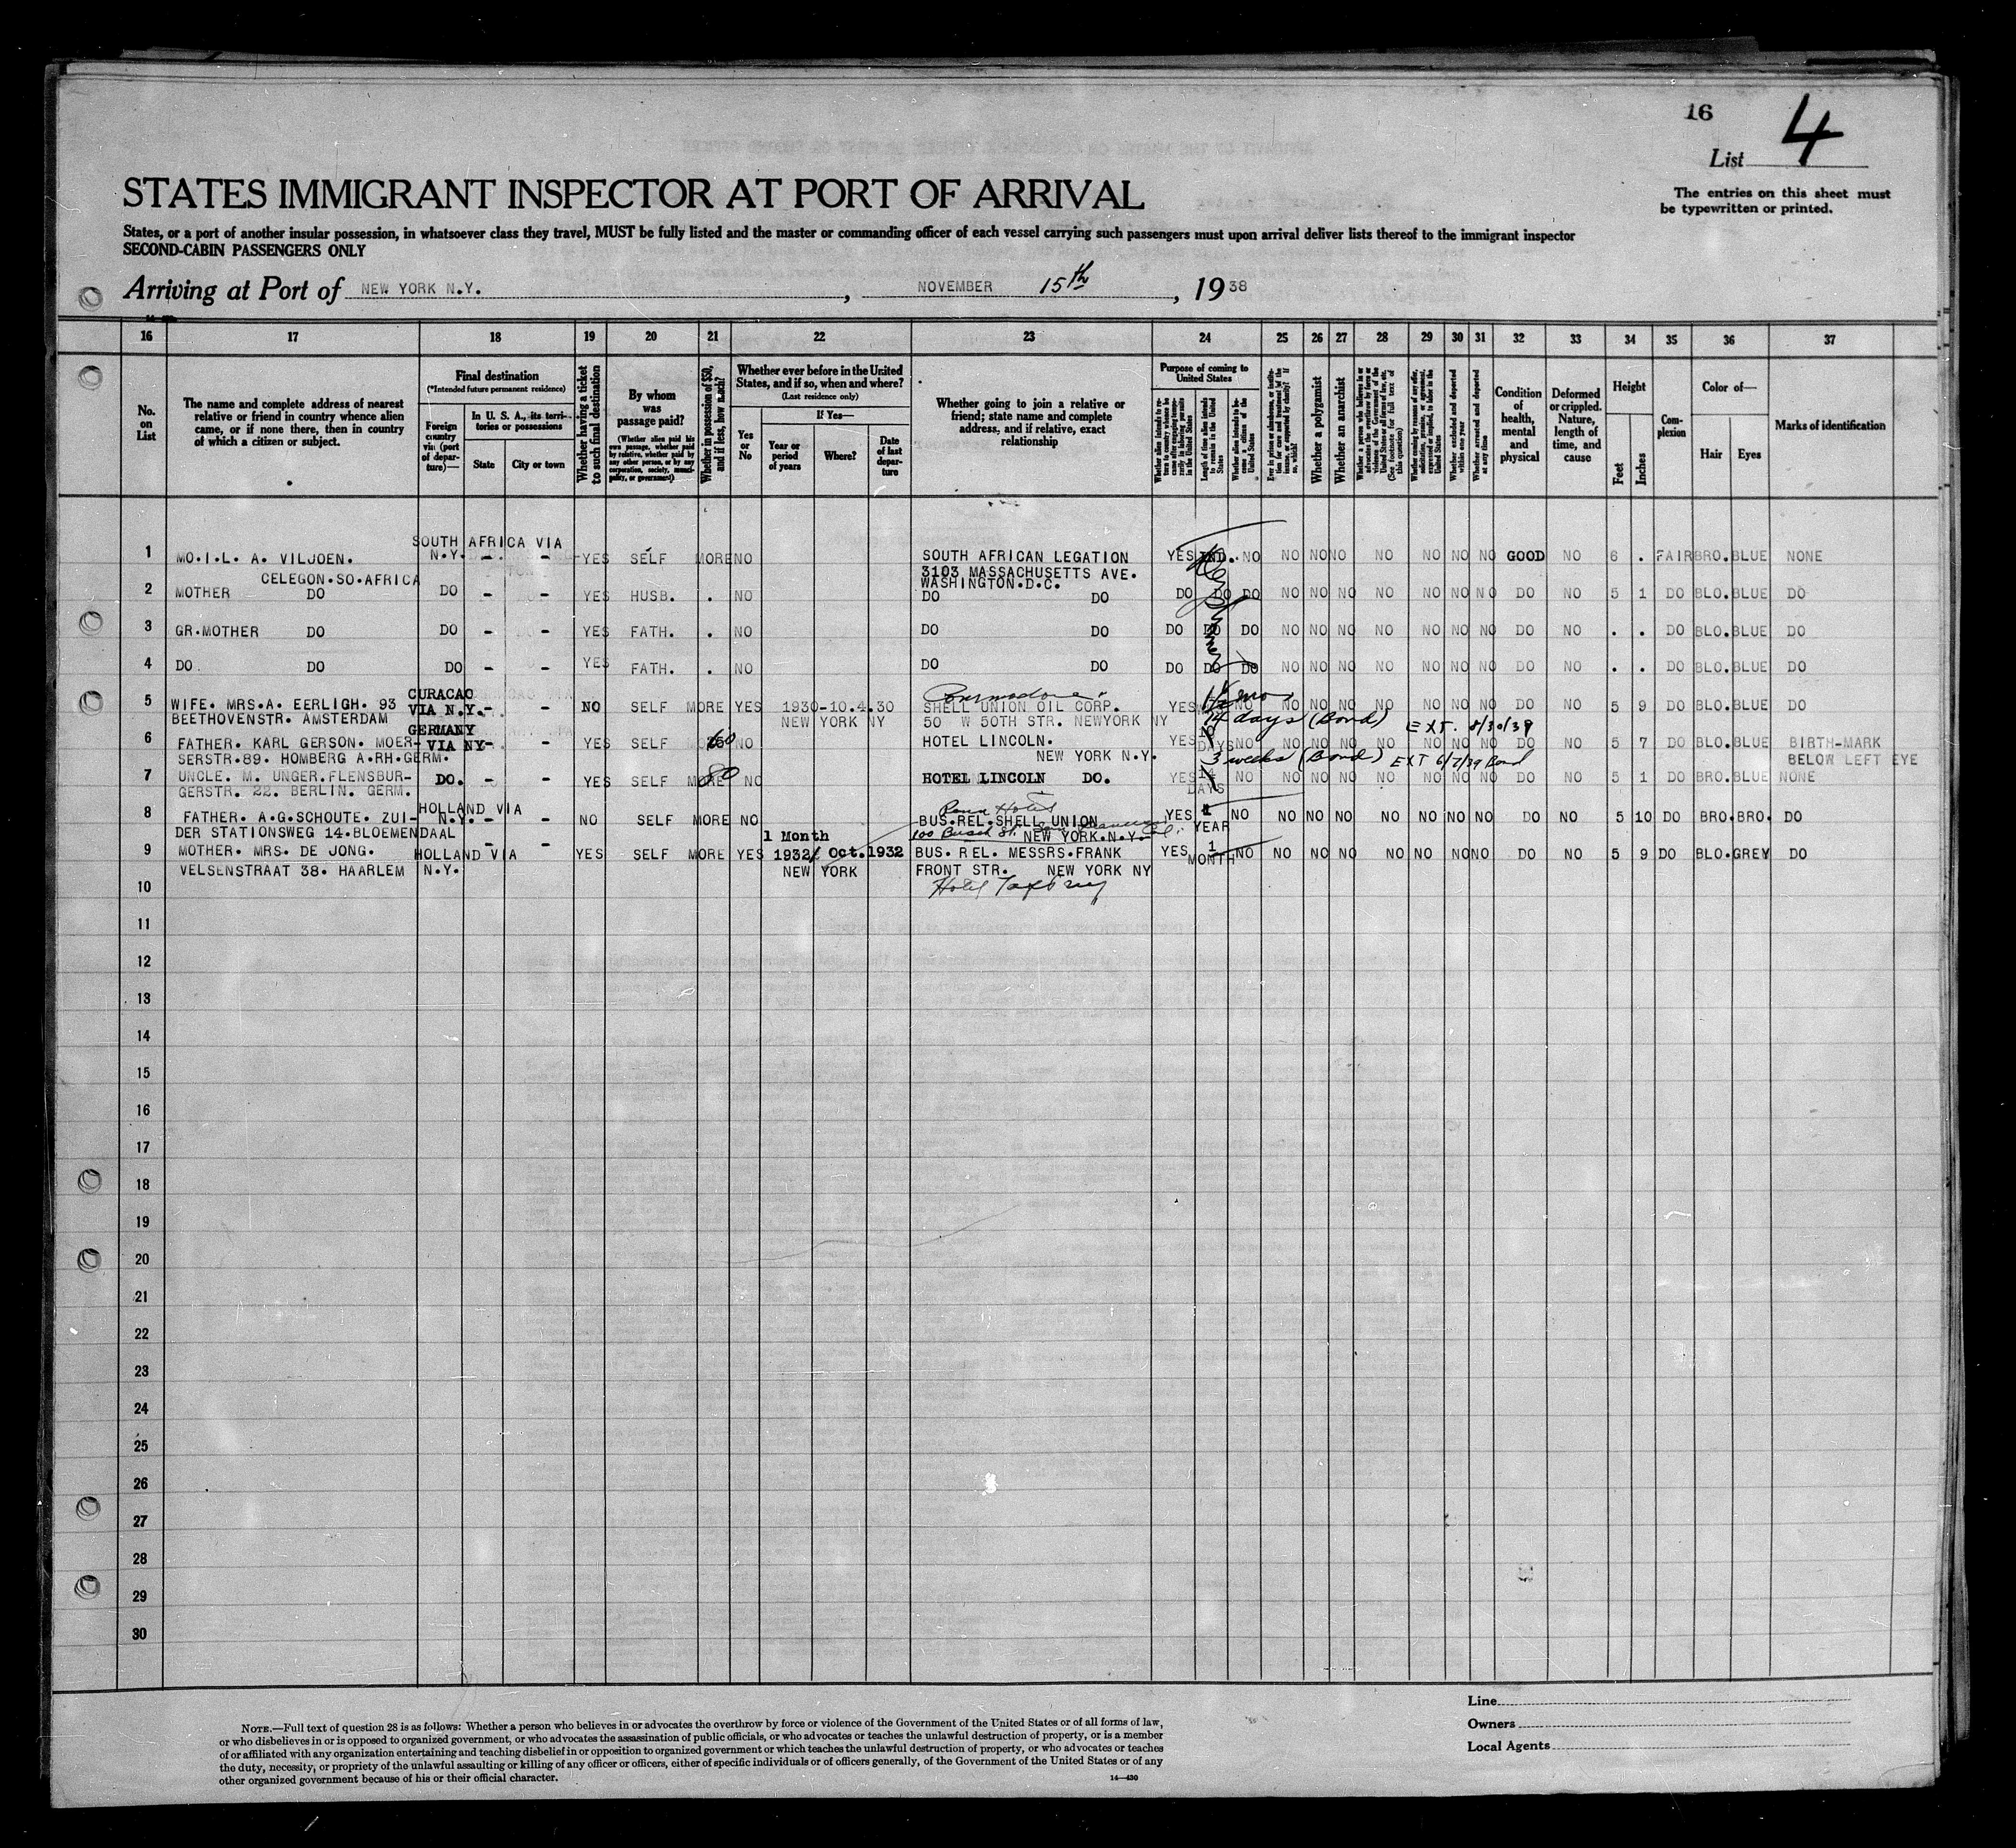 16
List 4
STATES IMMIGRANT INSPECTOR AT PORT OF ARRIVAL
The entries on this sheet must
be typewritten or printed.
States, or a port of another insular possession, in whatsoever class they travel, MUST be fully listed and the master or commanding officer of each vessel carrying such passengers must upon arrival deliver lists thereof to the immigrant inspector
SECOND-CABIN PASSENGERS ONLY
Arriving at Port of NEW YORK N.Y., NOVEMBER 15th, 1938
16 17 18 19 20 21 22 23 24 25 26 27 28 29 30 31 32 33 34 35 36 37
No. on List
The name and complete address of nearest relative or friend in country whence alien came, or if none there, then in country of which a citizen or subject.
Final destination
(*Intended future permanent residence)
Foreign country via (port of departure)—
In U. S. A., its territories or possessions
State
City or town
Whether having a ticket to such final destination
By whom was passage paid?
(Whether alien paid his own passage, whether paid by relative, whether paid by any other person, or by any corporation, society, municipality, or government)
Whether in possession of $50, and if less, how much?
Whether ever before in the United States, and if so, when and where?
(Last residence only)
If Yes—
Yes or No
Year or period of years
Where?
Date of last departure
Whether going to join a relative or friend; state name and complete address, and if relative, exact relationship
Purpose of coming to United States
Length of time alien intends to remain in the United States
Whether alien intends to become a citizen of the United States
Whether a polygamist
Whether an anarchist
Whether arrested and deported at any time
Condition of health, mental and physical
Deformed or crippled. Nature, length of time, and cause
Height
Feet
Inches
Complexion
Color of—
Hair
Eyes
Marks of identification
SOUTH AFRICA VIA
1 MO.I.L. A. VILJOEN. N.Y. - - YES SELF MORE NO SOUTH AFRICAN LEGATION YES IND. NO NO NO NO NO NO NO NO GOOD NO 6 . FAIR BRO. BLUE NONE
CELEGON.SO.AFRICA 3103 MASSACHUSETTS AVE.
WASHINGTON.D.C.
2 MOTHER DO DO - - YES HUSB. . NO DO DO DO DO DO NO NO NO NO NO NO NO DO NO 5 1 DO BLO. BLUE DO
3 GR.MOTHER DO DO - - YES FATH. . NO DO DO DO DO DO NO NO NO NO NO NO NO DO NO . . DO BLO. BLUE DO
4 DO DO DO - - YES FATH. . NO DO DO DO DO DO NO NO NO NO NO NO NO DO NO . . DO BLO. BLUE DO
CURACAO
5 WIFE. MRS.A. EERLIGH. 93 VIA N.Y. - - NO SELF MORE YES 1930-10.4.30 SHELL UNION OIL CORP. YES NO NO NO NO NO NO NO NO DO NO 5 9 DO BLO. BLUE DO
BEETHOVENSTR. AMSTERDAM NEW YORK NY 50 W 50TH STR. NEWYORK NY
14 days (Bond) EXT. 8/30/39
GERMANY
6 FATHER. KARL GERSON. MOER- VIA NY - - YES SELF 60 NO HOTEL LINCOLN. YES DAYS NO NO NO NO NO NO NO NO DO NO 5 7 DO BLO. BLUE BIRTH-MARK
SERSTR.89. HOMBERG A.RH.GERM. NEW YORK N.Y. BELOW LEFT EYE
3 weeks (Bond) EXT 6/7/39 Bond
7 UNCLE. M. UNGER.FLENSBUR- DO. - - YES SELF MORE 80 NO HOTEL LINCOLN DO. YES 14 DAYS NO NO NO NO NO NO NO NO DO NO 5 1 DO BRO. BLUE NONE
GERSTR. 22. BERLIN. GERM.
HOLLAND VIA
8 FATHER. A.G.SCHOUTE. ZUI- N.Y. - - NO SELF MORE NO BUS.REL.SHELL UNION YES YEAR NO NO NO NO NO NO NO NO DO NO 5 10 DO BRO. BRO. DO
DER STATIONSWEG 14.BLOEMENDAAL 100 Bush St. NEW YORK.N.Y.
1 Month
9 MOTHER. MRS. DE JONG. HOLLAND VIA - - YES SELF MORE YES 1932/ Oct.1932 BUS. REL. MESSRS.FRANK YES 1 MONTH NO NO NO NO NO NO NO NO DO NO 5 9 DO BLO. GREY DO
VELSENSTRAAT 38. HAARLEM N.Y. NEW YORK FRONT STR. NEW YORK NY
Hotel Taft
10
11
12
13
14
15
16
17
18
19
20
21
22
23
24
25
26
27
28
29
30
Line
Owners
Local Agents
NOTE.—Full text of question 28 is as follows: Whether a person who believes in or advocates the overthrow by force or violence of the Government of the United States or of all forms of law,
or who disbelieves in or is opposed to organized government, or who advocates the assassination of public officials, or who advocates or teaches the unlawful destruction of property, or is a member
of or affiliated with any organization entertaining and teaching disbelief in or opposition to organized government or which teaches the unlawful destruction of property, or who advocates or teaches
the duty, necessity, or propriety of the unlawful assaulting or killing of any officer or officers, either of specific individuals or of officers generally, of the Government of the United States or of any
other organized government because of his or their official character.
14—430